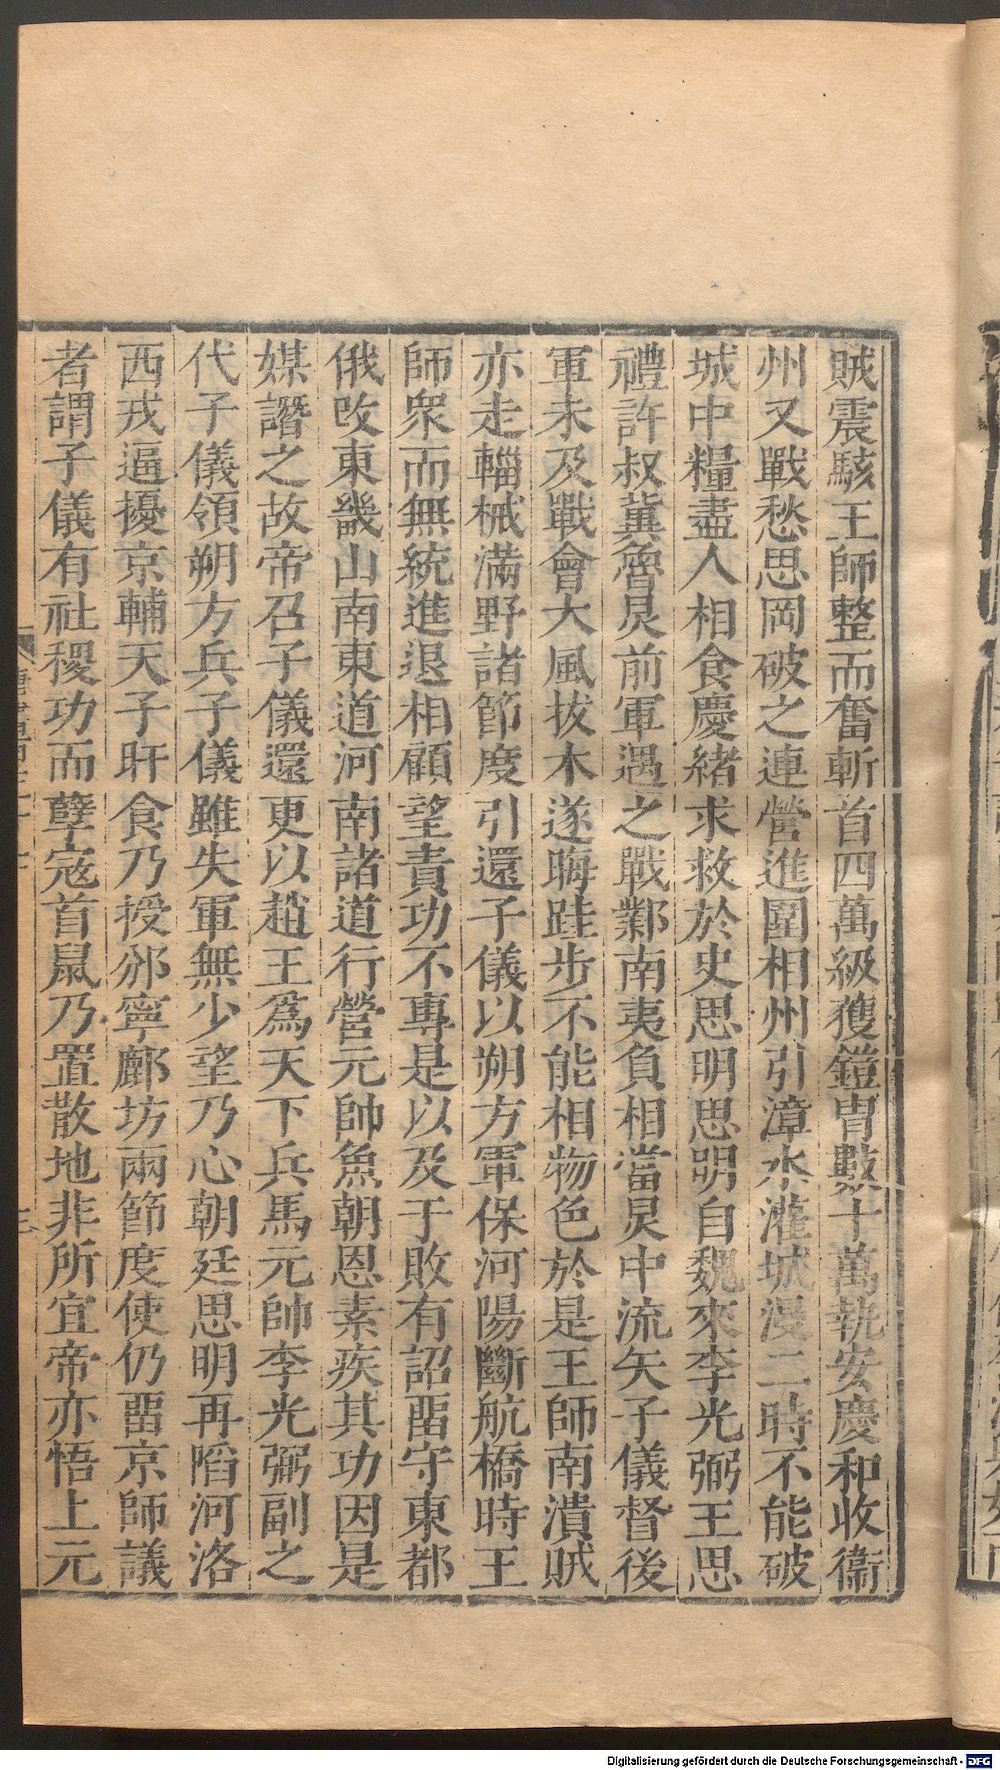 賊震駭王師整而奮斬首四萬級獲鎧冑數十萬執安慶和收衞
州又戰愁思岡破之連營進圍相州引漳水灌城漫二時不能破
城中糧盡人相食慶緒求救於史思明思明自魏來李光弼王思
禮許叔冀魯炅前軍遇之戰鄴南夷負相當炅中流矢子儀督後
軍未及戰會大風拔木遂晦跬步不能相物色於是王師南潰賊
亦走輜械滿野諸節度引還子儀以朔方軍保河陽斷航橋時王
師眾而無統進退相顧望責功不專是以及于敗有詔畱守東都
俄改東畿山南東道河南諸道行營元帥魚朝恩素疾其功因是
媒譖之故帝召子儀還更以趙王爲天下兵馬元帥李光弼副之
代子儀領朔方兵子儀雖失軍無少望乃心朝廷思明再陷河洛
西戎逼擾京輔天子旰食乃授邠寧鄜坊兩節度使仍畱京師議
者謂子儀有社稷功而孽寇首鼠乃置散地非所宜帝亦悟上元
Digitalisierung gefördert durch die Deutsche Forschungsgemeinschaft - DFG